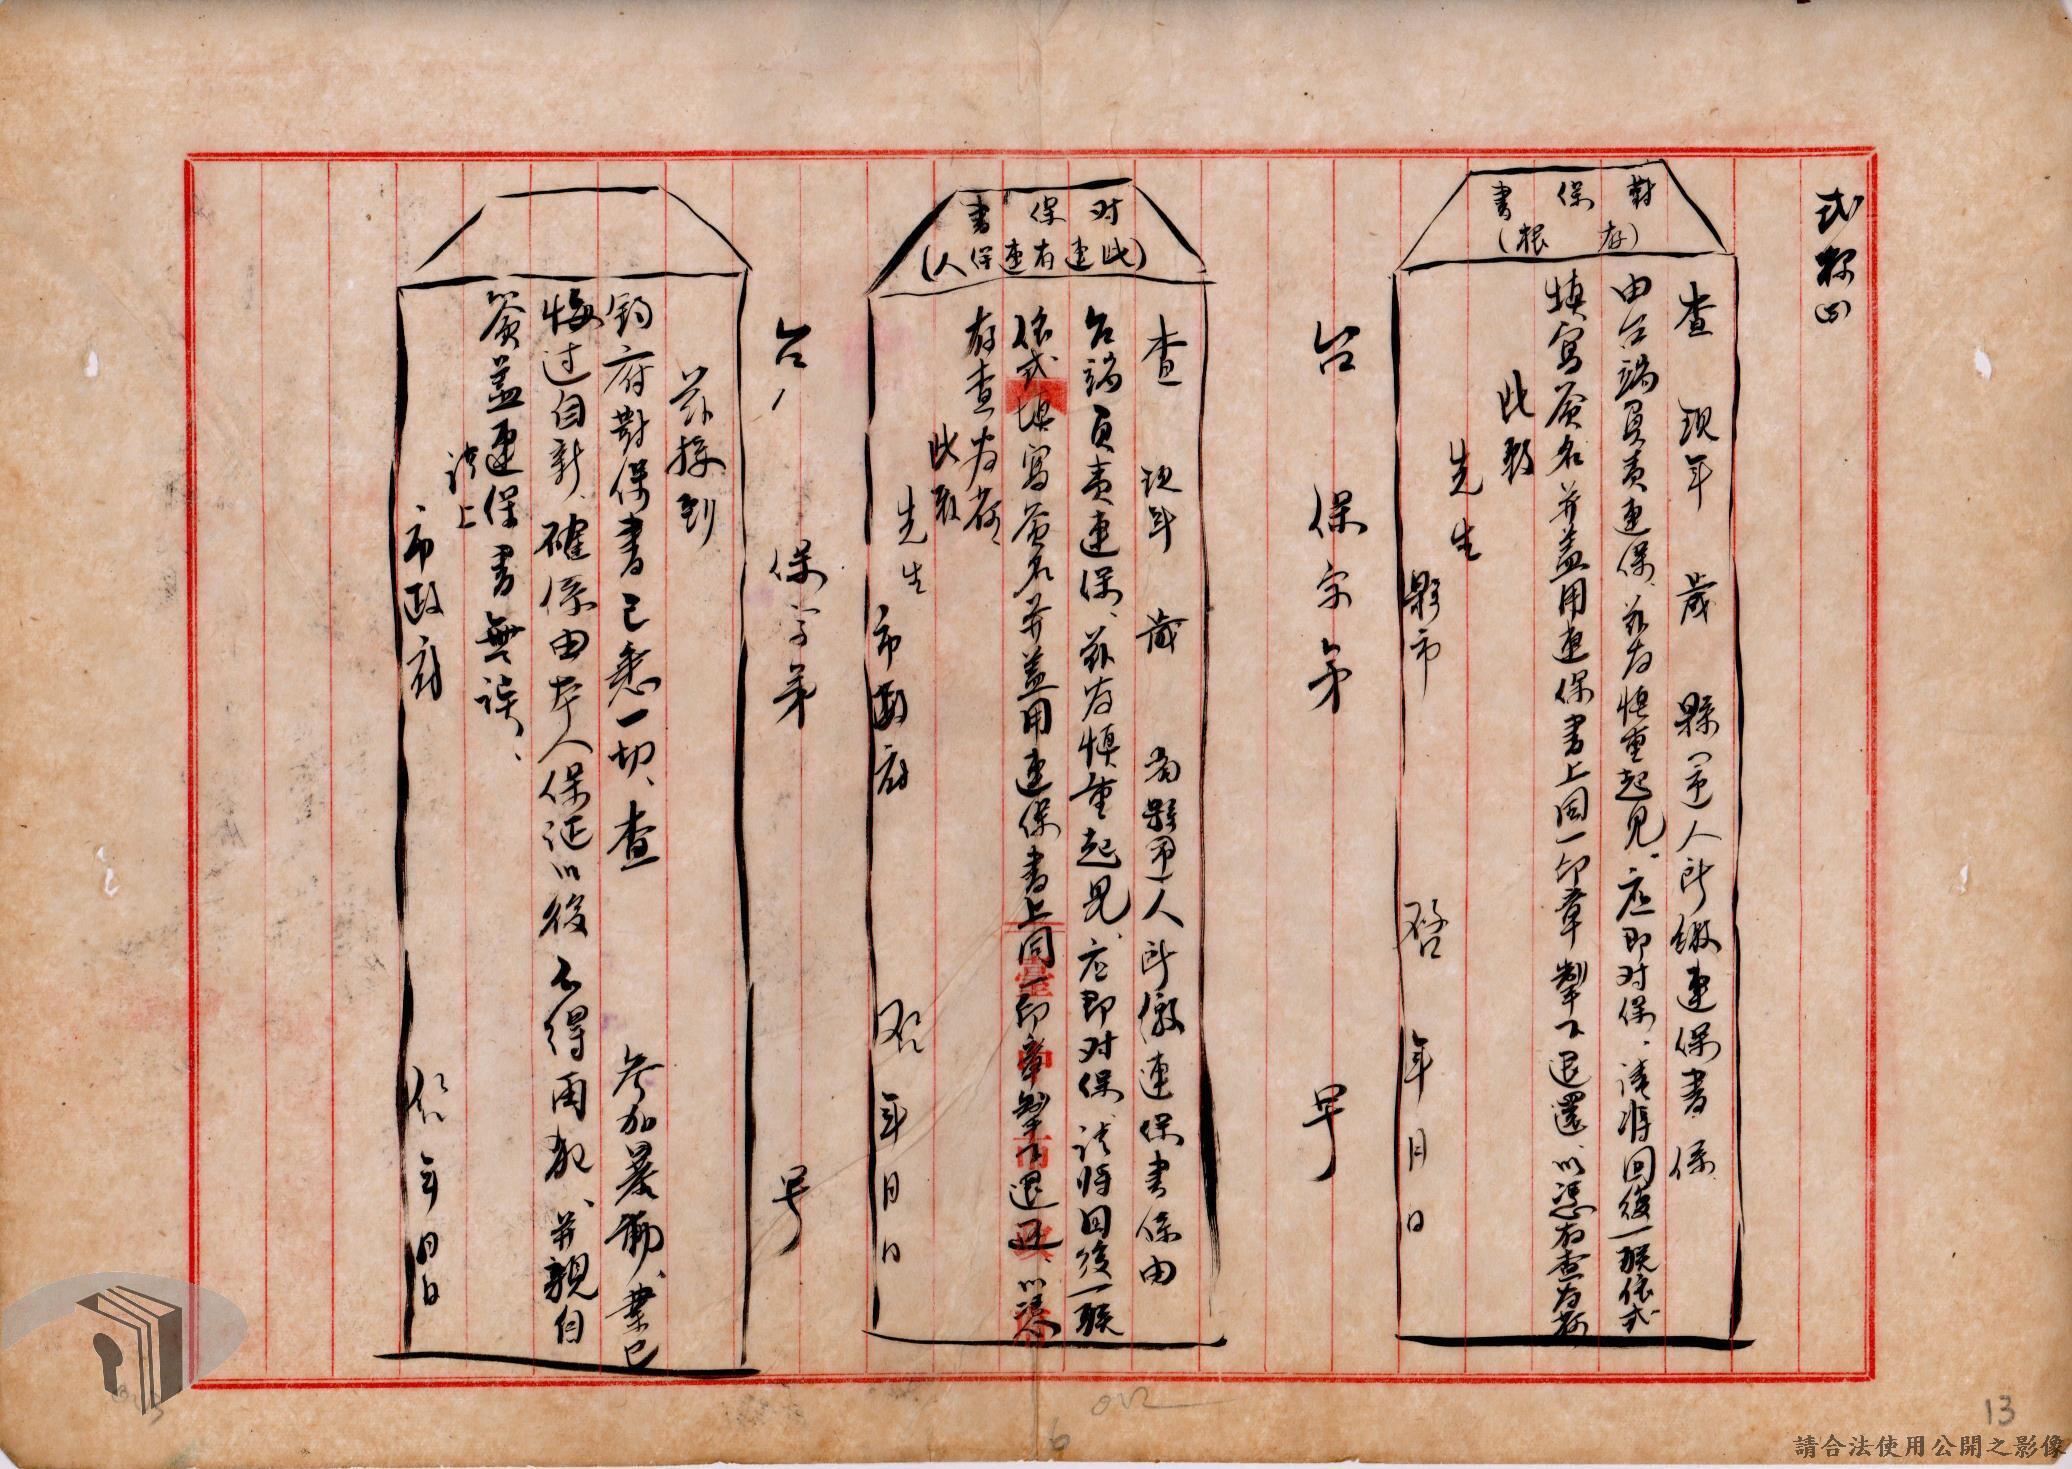 式樣(四)
對保書
(存根)
查　現年　歲　縣(市)人所繳連保書係
由台端負責連保、茲為慎重起見、应即对保、請將回後一联依式
填寫簽名并蓋用連保書上同一印章掣下退還、以憑存查為荷
此致
先生
縣市　啓　年月日
台　保字第　号
对保書
(此連存連保人)
查　現年　歲　省縣(市)人所繳連保書係由
台端負責連保、茲為慎重起見、应即对保、請將回後一联
依式填寫簽名并蓋用連保書上同一印章掣下退还、以憑
存查为荷
此致
先生
市政府　啓　年月日
台　保字第　号
茲接到
鈞府對保書已悉一切、查　參加暴動、業已
悔过自新、確係由本人保证以後不得再犯、并親自
簽蓋連保書無誤、
謹上
市政府
年月日
臺中市政府
13
請合法使用公開之影像